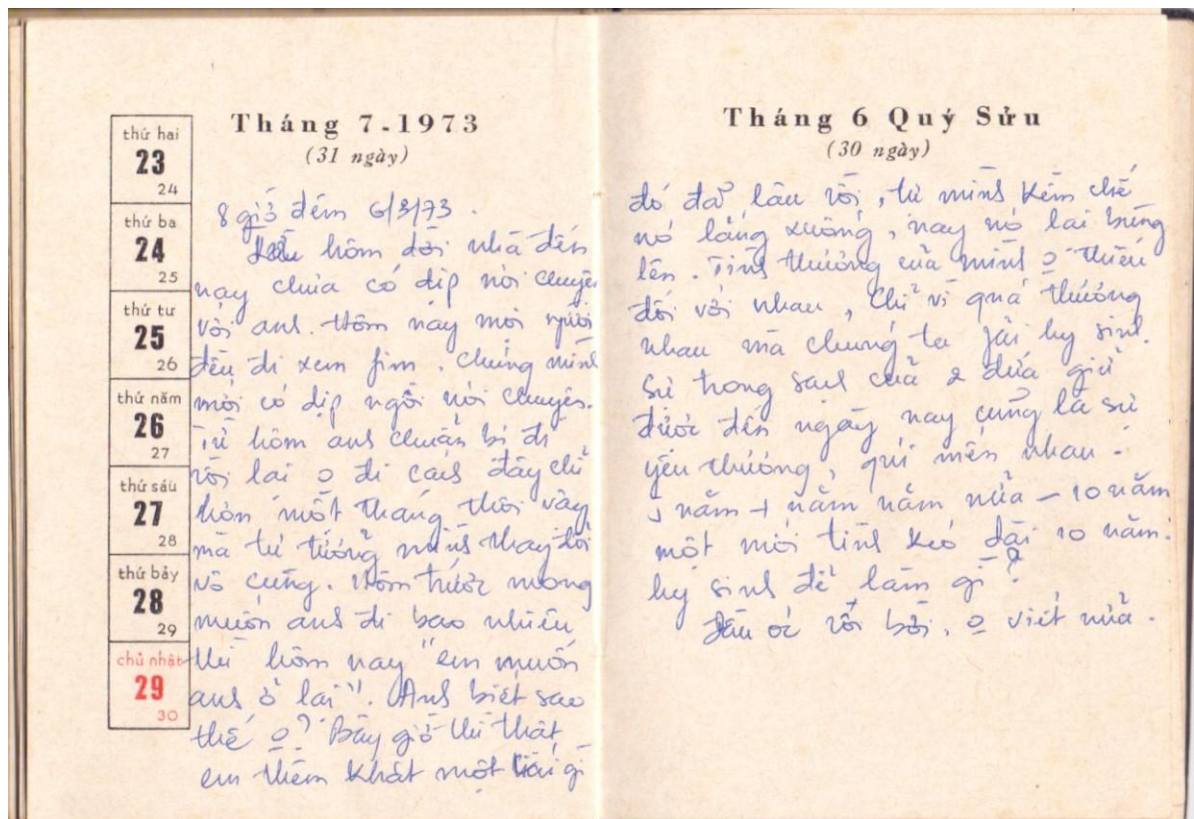 Tháng 7-1973
(31 ngày)
thứ hai
23
24
thứ ba
24
25
thứ tư
25
26
thứ năm
26
27
thứ sáu
27
28
thứ bảy
28
29
chủ nhật
29
30
8 giờ đêm 6/3/73.
hôm dời nhà đến
nay chưa có dịp nói chuyện
với anh. Hôm nay mọi người
đều đi xem fim. Chúng mình
mới có dịp ngồi nói chuyện.
Từ hôm anh chuẩn bị đi
rồi lại o đi cách đây chỉ
hơn một tháng thôi vậy
mà tư tưởng mình thay đổi
vô cùng. Hôm trước mong
muốn anh đi bao nhiêu
thì hôm nay "em muốn
anh ở lại". Anh biết sao
thế o? Bây giờ thì thật
em thèm khát một cái gì
Tháng 6 Quý Sửu
(30 ngày)
đó đã lâu rồi, tự mình kềm chế
nó lắng xuống, nay nó lại bùng
lên. Tình thương của mình o thiếu
đối với nhau, chỉ vì quá thương
nhau mà chúng ta fải hy sinh.
Sự trong sạch của 2 đứa giữ
được đến ngày nay cũng là sự
yêu thương, quí mến nhau.
5 năm + năm năm nữa - 10 năm
một mối tình kéo dài 10 năm.
hy sinh để làm gì?
Đầu óc rối bời, o viết nữa.